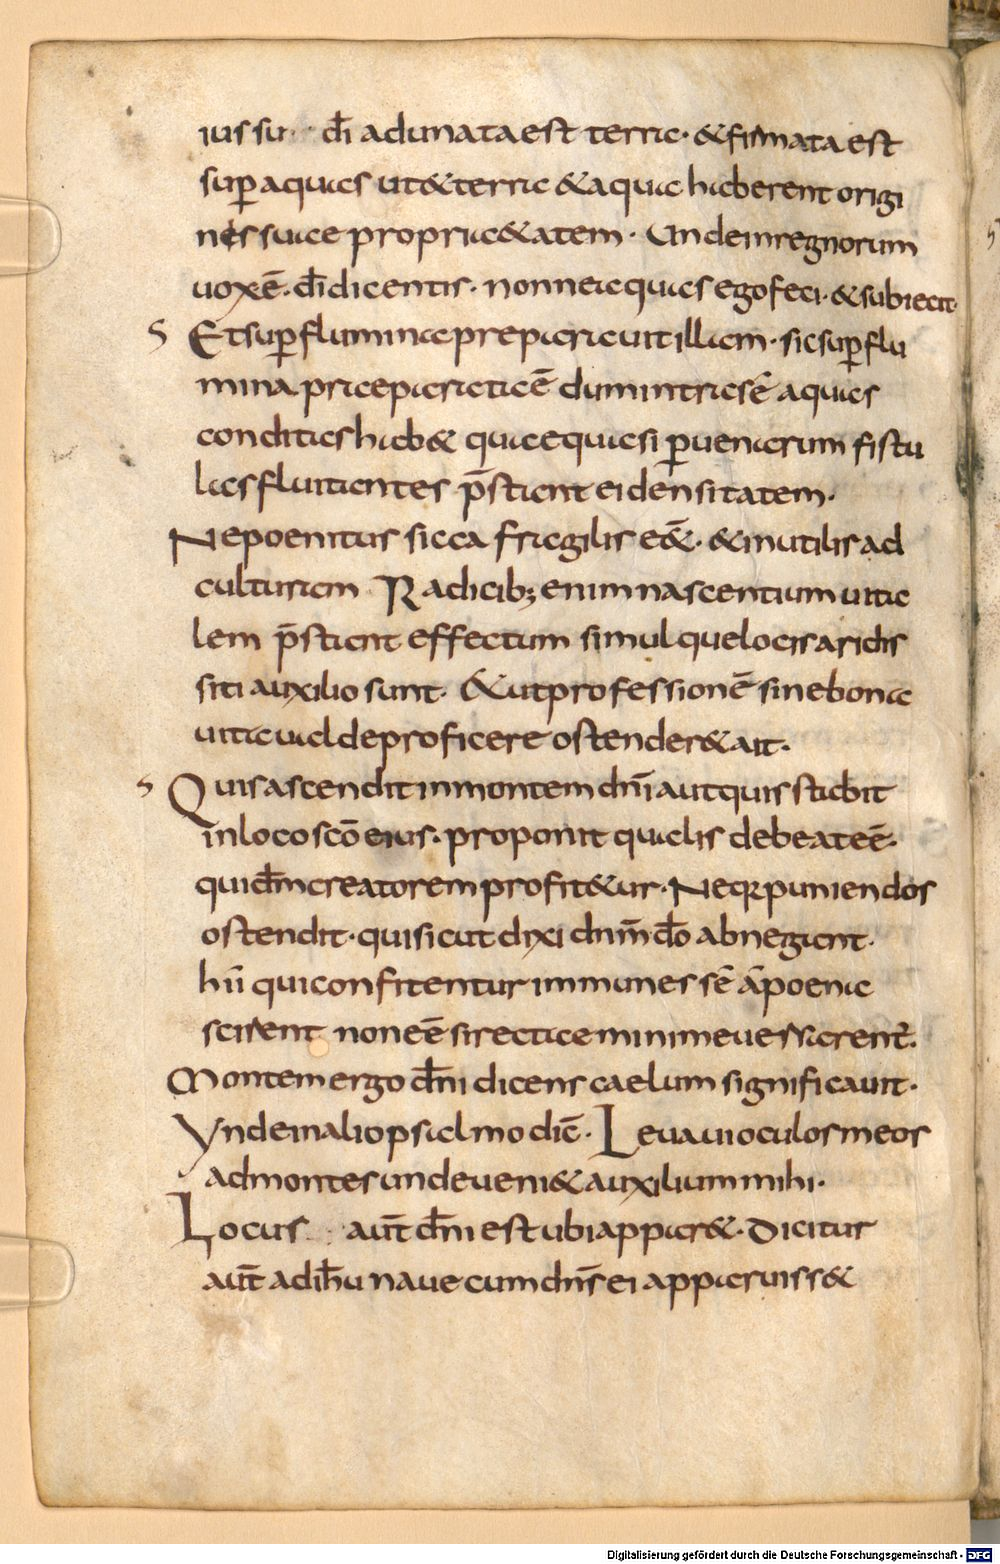 iussu di adunata est terra. & firmata est
sup aquas ut & terra & aqua haberent origi
nes suae propri&atem. Unde in regnorum
uox ē. di dicentis. nonne aquas ego feci. & subiecit.
S Et sup flumina preparauit illam. sic sup flu
mina praeparata ē dum intra se aquas
conditas hab& quae quasi puenarum fistu
las fluitantes pstant ei densitatem.
Ne poenitus sicca fragilis e&. & inutilis ad
culturam Radicib; enim nascentium uita
lem pstant effectum simulque locis aridis
siti auxilio sunt. & ut professionē sine bona
uita ualde proficere ostender& ait.
S Quis ascendit in montem dni aut quis stabit
in loco scō eius. proponit qualis debeat eē.
qui dm creatorem profit&ur. Neq; puniendos
ostendit. qui sicut dixi dnm do abnegant.
hii qui confitentur immunes sē a poena
scirent non eē si recta e minime uersarent.
Montem ergo dni dicens caelum significauit.
Unde in alio psalmo dic. Leuaui oculos meos
ad montes unde ueni& auxilium mihi.
Locus aut dni est ubi appar&. Dicitur
aut ad ihu naue cum dns ei apparuiss&
Digitalisierung gefördert durch die Deutsche Forschungsgemeinschaft - DFG